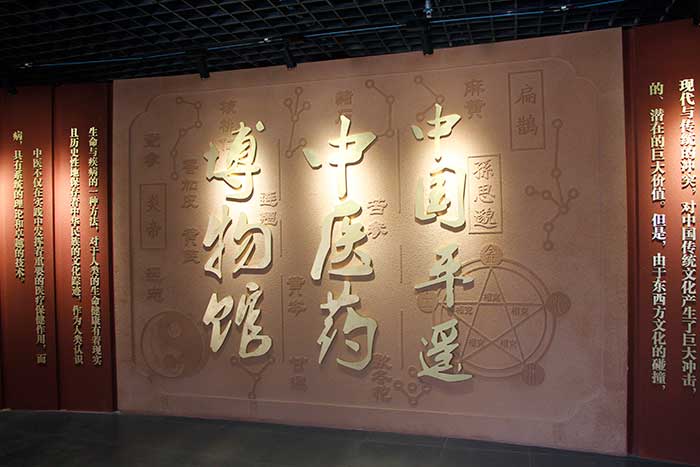 病，具有系统的理论和卓越的技术。
中医不仅在实践中发挥着重要的医疗保健作用，而
且历史性地保存着中华民族的文化踪迹，作为人类认识
生命与疾病的一种方法，对于人类的生命健康有着现实
中国平遥
中医药
博物馆
扁鹊
麻黄
孫思邈
苦参
黄芩
炎帝
相克
相克
相克
相克
的、潜在的巨大价值。但是，由于东西方文化的碰撞，
现代与传统的冲突，对中国传统文化产生了巨大冲击，